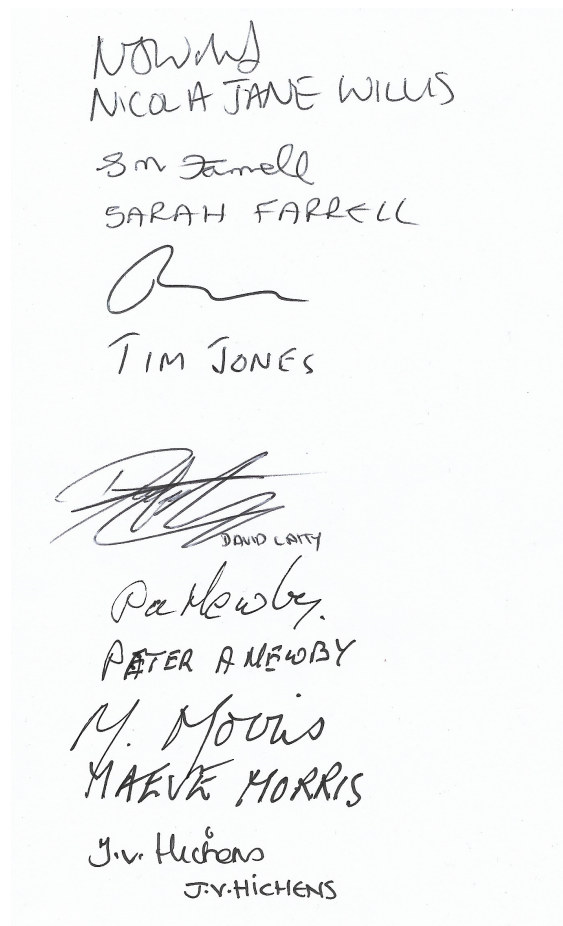 NICOLA JANE WILLIS
S M Farrell
SARAH FARRELL
TIM JONES
DAVID LAITY
PA Newby.
PETER A NEWBY
M. Morris
MAEVE MORRIS
J.V. Hichens
J.V.HICHENS